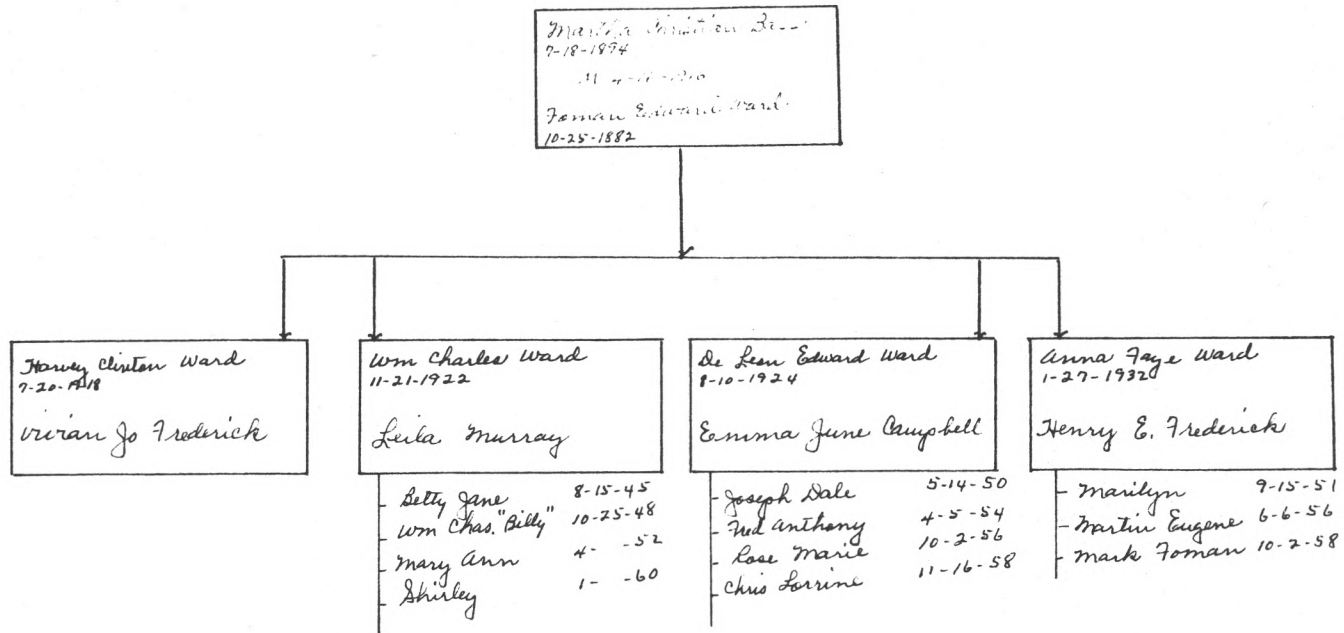 Martha Christian
7-18-1894
M 4-
Foman Edward Ward
10-25-1882
Harvey Clinton Ward
7-20-1918
Vivian Jo Frederick
Wm Charles Ward
11-21-1922
Leila Murray
Betty Jane 8-15-45
Wm Chas. "Billy" 10-25-48
Mary Ann 4- -52
Shirley 1- -60
De Leon Edward Ward
8-10-1924
Emma June Campbell
Joseph Dale 5-14-50
Fred Anthony 4-5-54
Rose Marie 10-2-56
Chris Lorrine 11-16-58
Anna Faye Ward
1-27-1932
Henry E. Frederick
Marilyn 9-15-51
Martin Eugene 6-6-56
Mark Foman 10-2-58